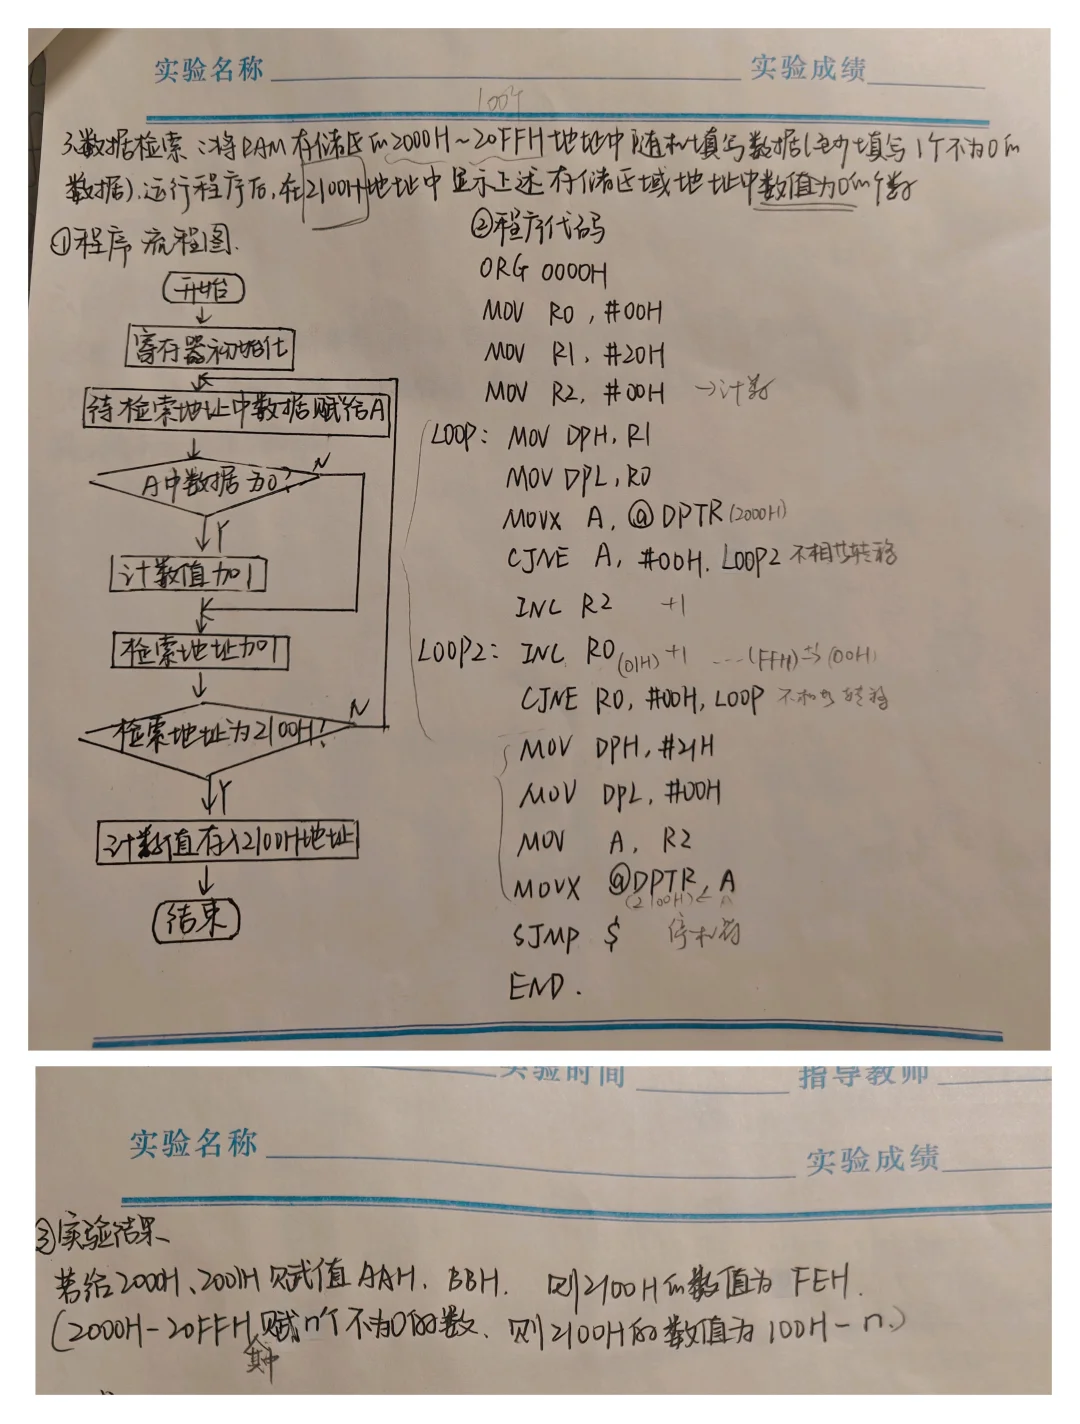 实验名称 实验成绩
100个
3.数据检索:将RAM存储区的2000H~20FFH地址中随机填写数据(至少填写1个不为0的
数据).运行程序后,在2100H地址中显示上述存储区域地址中数值为0的个数
①程序流程图.
开始
寄存器初始化
待检索地址中数据赋给A
A中数据为0?
N
Y
计数值加1
检索地址加1
检索地址为2100H?
N
Y
计数值存入2100H地址
结束
②程序代码
ORG 0000H
MOV R0, #00H
MOV R1, #20H
MOV R2, #00H →计数
LOOP: MOV DPH, R1
MOV DPL, R0
MOVX A, @DPTR (2000H)
CJNE A, #00H. LOOP2 不相等转移
INC R2 +1
LOOP2: INC R0 (01H) +1 ....(FFH)→(00H)
CJNE R0, #00H, LOOP 不相等转移
MOV DPH, #21H
MOV DPL, #00H
MOV A, R2
MOVX @DPTR, A
(2100H)← A
SJMP $ 停机符
END.
实验时间 指导教师
实验名称 实验成绩
③实验结果
若给2000H、2001H赋值AAH、BBH. 则2100H的数值为FEH.
(2000H-20FFH其中赋n个不为0的数、则2100H的数值为100H-n.)